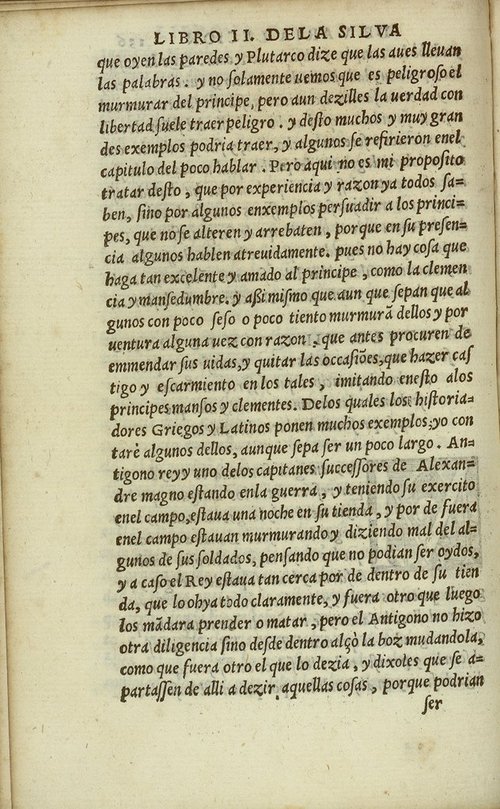 LIBRO II. DELA SILVA
que oyen las paredes y Plutarco dize que las aues lleuan
las palabras. y no solamente uemos que es peligroso el
murmurar del principe, pero aun dezilles la uerdad con
libertad suele traer peligro. y desto muchos y muy gran
des exemplos podria traer, y algunos se refirieron enel
capitulo del poco hablar. Pero aqui no es mi proposito
tratar desto, que por experiencia y razon ya todos sa-
ben, sino por algunos enxemplos persuadir a los princi-
pes, que no se alteren y arrebaten, porque en su presen-
cia algunos hablen atreuidamente. pues no hay cosa que
haga tan excelente y amado al principe, como la clemen
cia y mansedumbre. y aßi mismo que aun que sepan que al
gunos con poco seso o poco tiento murmurã dellos y por
uentura alguna uez con razon, que antes procuren de
emmendar sus uidas, y quitar las occasiões, que hazer cas
tigo y escarmiento en los tales, imitando enesto alos
principes mansos y clementes. Delos quales los historia-
dores Griegos y Latinos ponen muchos exemplos: yo con
tarè algunos dellos, aunque sepa ser un poco largo. An-
tigono rey y uno delos capitanes successores de Alexan-
dre magno estando enla guerra, y teniendo su exercito
enel campo, estaua una noche en su tienda, y por de fuera
enel campo estauan murmurando y diziendo mal del al-
gunos de sus soldados, pensando que no podian ser oydos,
y a caso el Rey estaua tan cerca por de dentro de su tien
da, que lo ohya todo claramente, y fuera otro que luego
los mãdara prender o matar, pero el Antigono no hizo
otra diligencia sino desde dentro alçò la boz mudandola,
como que fuera otro el que lo dezia, y dixoles que se a-
partassen de alli a dezir aquellas cosas, porque podrian
ser